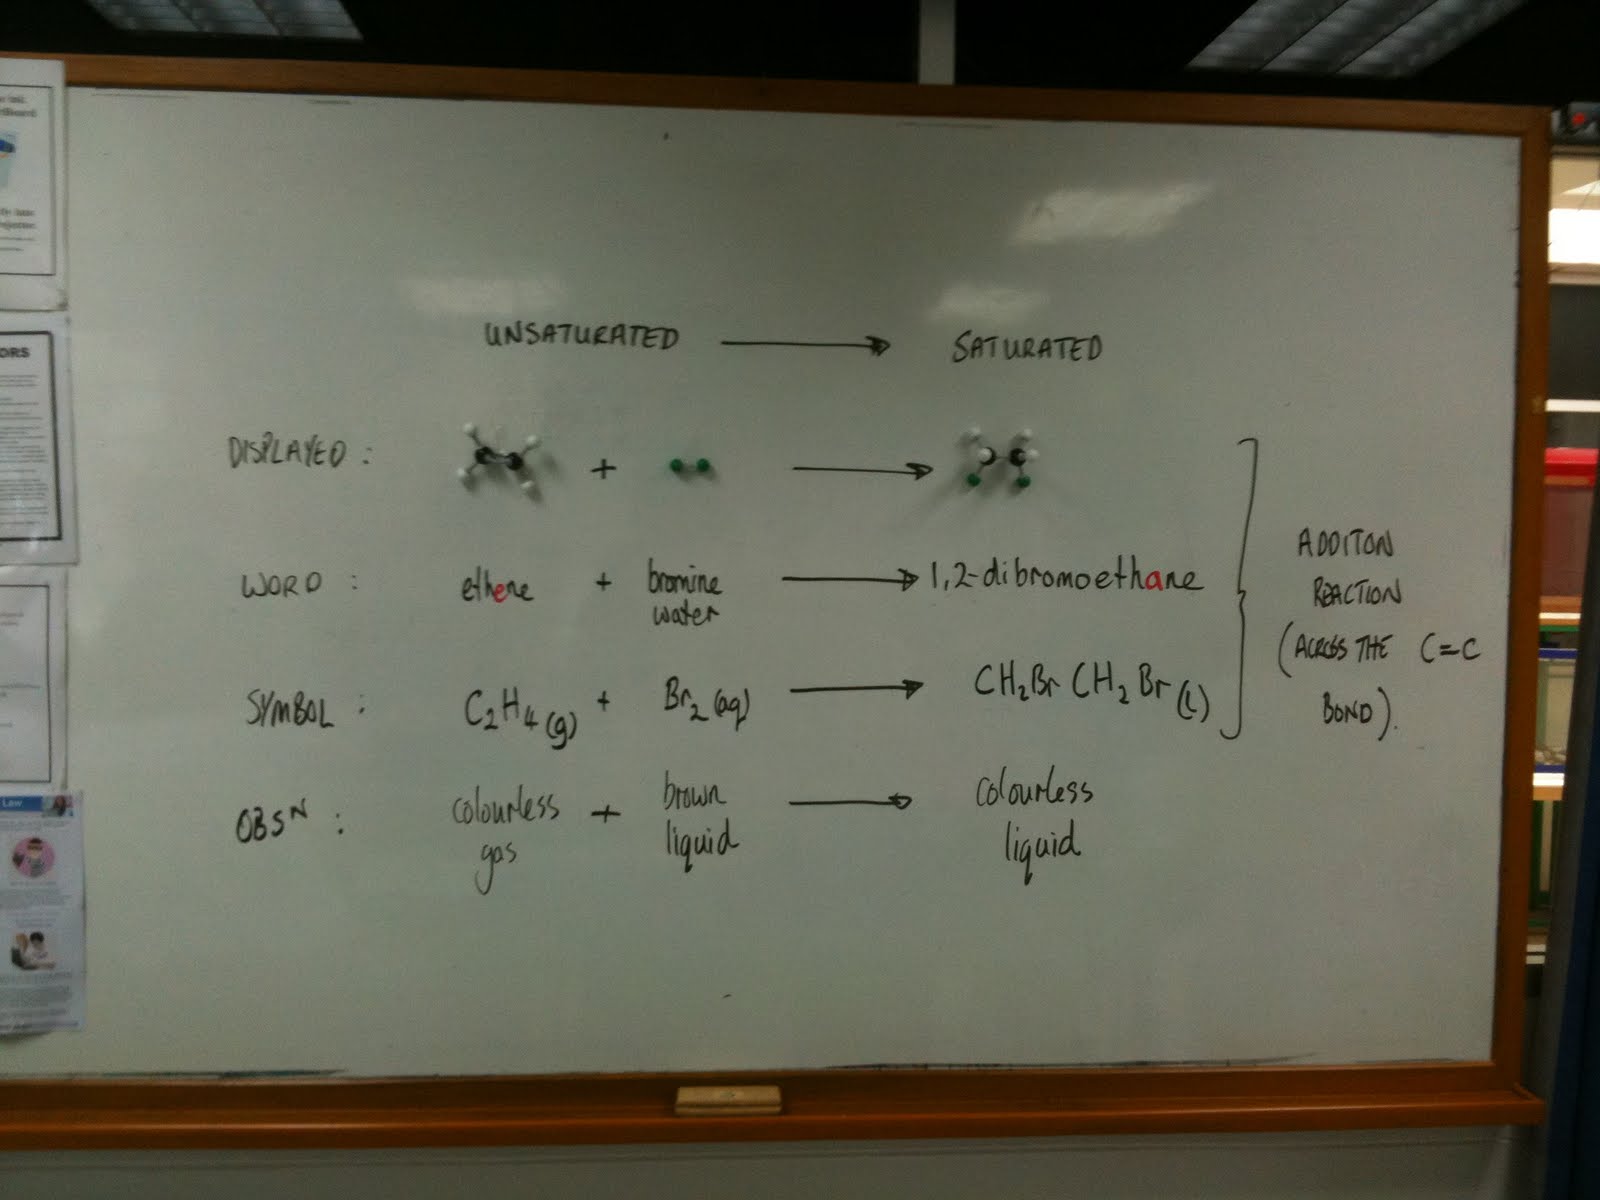 UNSATURATED → SATURATED
DISPLAYED : + →
WORD : ethene + bromine water → 1,2-dibromoethane
SYMBOL : C₂H₄(g) + Br₂(aq) → CH₂Br CH₂Br(l)
OBSᴺ : colourless gas + brown liquid → colourless liquid
ADDITON
REACTION
(ACROSS THE C=C
BOND).
ORS
Law